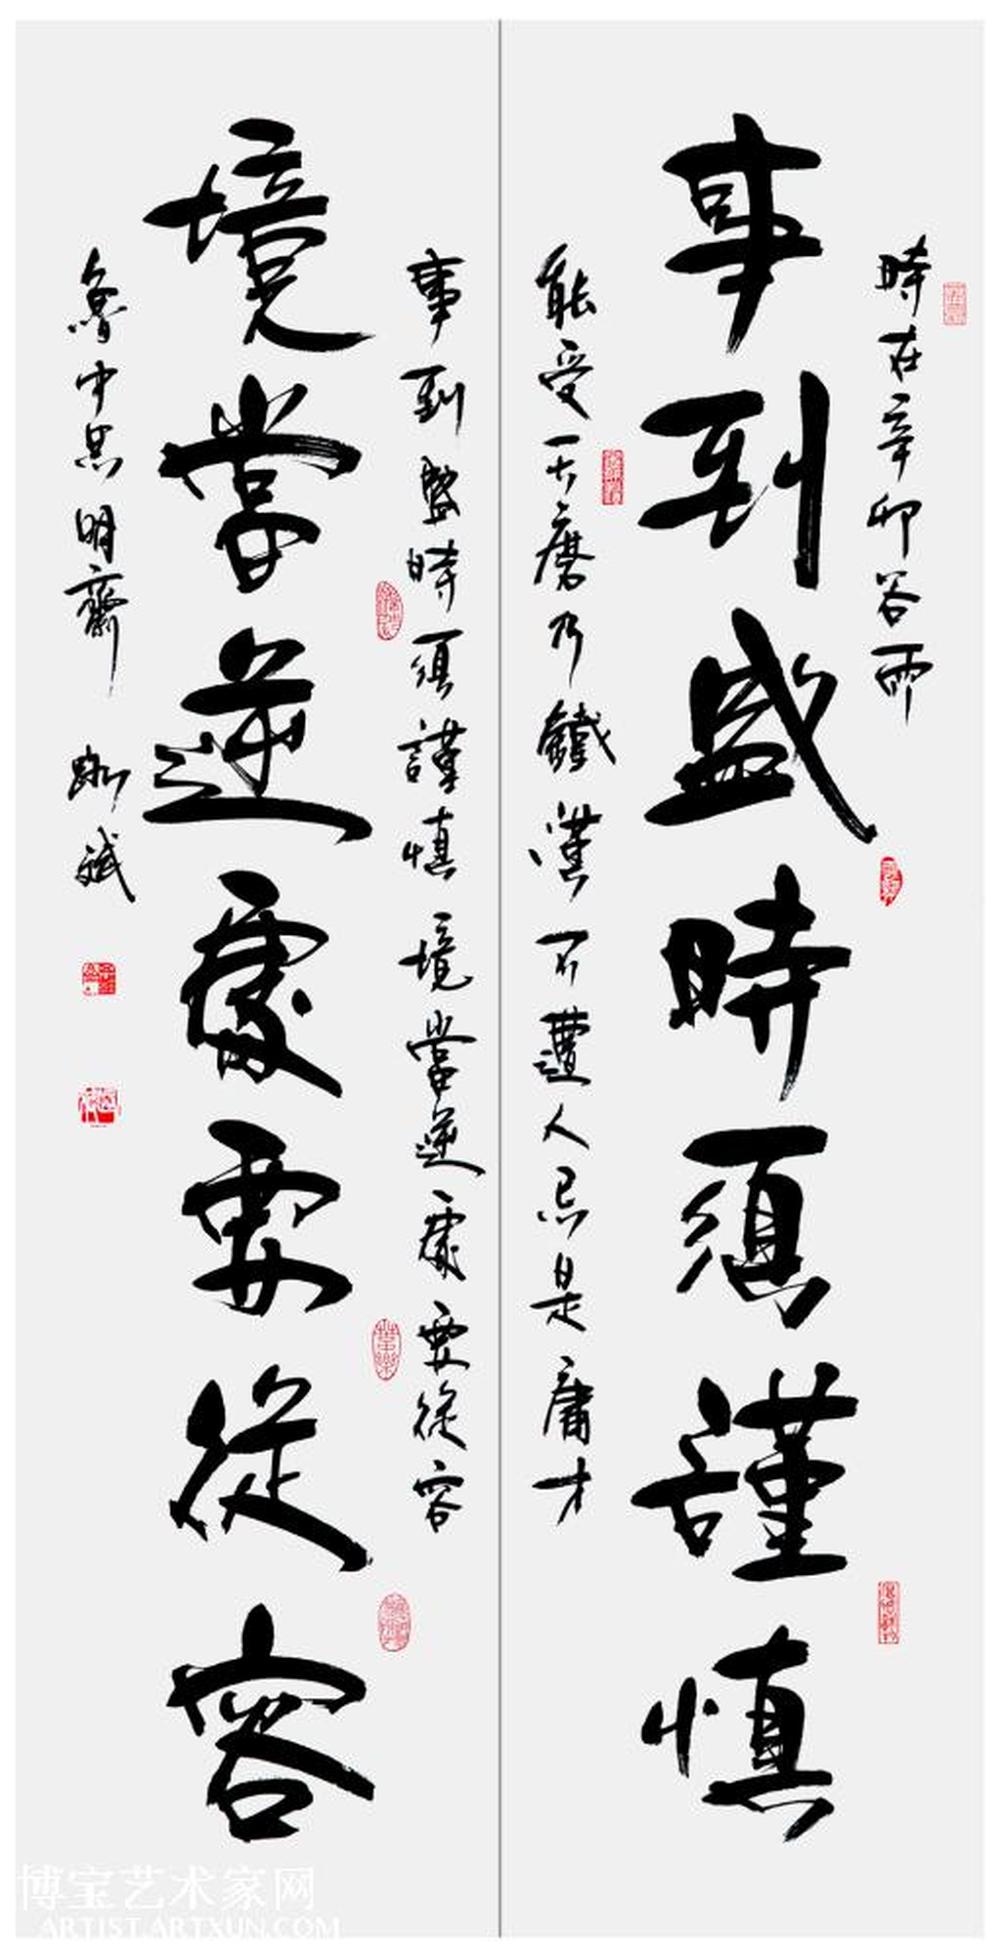 時在辛卯谷雨
事到盛時須謹慎
能受天磨乃鐵漢不遭人忌是庸才
事到盛時須謹慎境當逆處要從容
境當逆處要從容
魯中
明齋
斌
博宝艺术家网
ARTIST.ARTXUN.COM